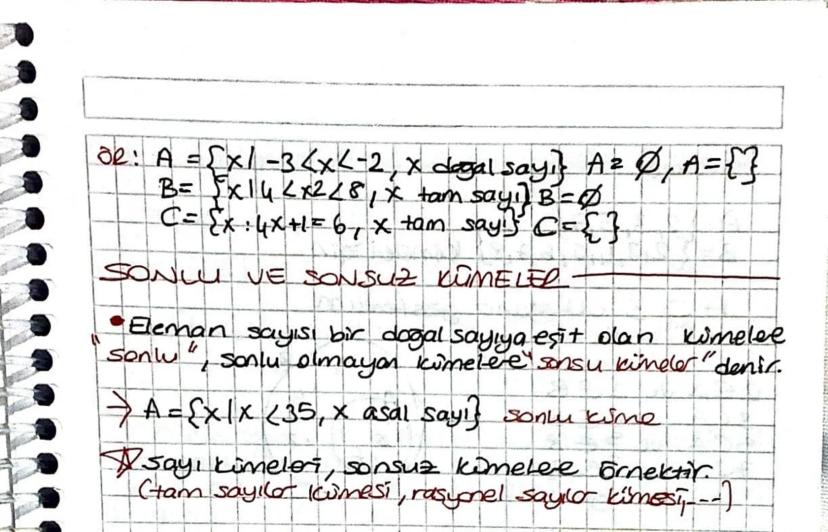 ör: A = {x | -3 < x < -2, x doğal sayı} A = ∅, A = { }
B = {x | 4 < x2 < 8, x tam sayı} B = ∅
C = {x : 4x+1 = 6, x tam sayı} C = { }
SONLU VE SONSUZ KÜMELER
• Eleman sayısı bir doğal sayıya eşit olan kümelere
"sonlu", sonlu olmayan kümelere "sonsu kümeler" denir.
→ A = {x | x < 35, x asal sayı} sonlu küme
☆ Sayı kümeleri, sonsuz kümelere örnektir.
(tam sayılar kümesi, rasyonel sayılar kümesi, ---)